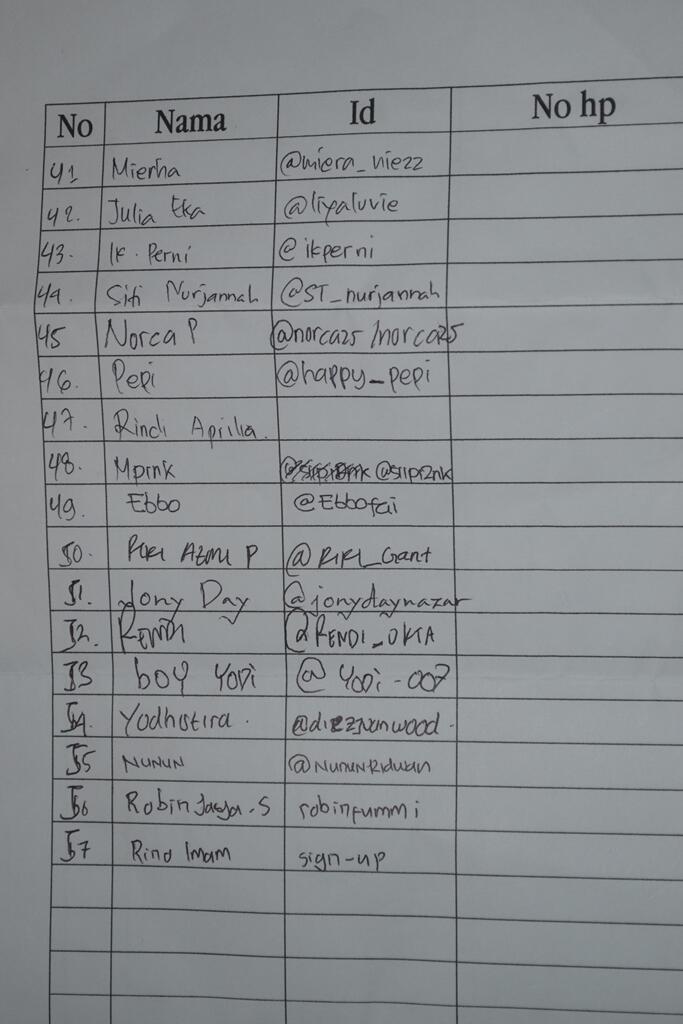 No Nama Id No hp
41 Mierha @miera_niezz
42. Julia Eka @liyaluvie
43. Ik. Perni @ikperni
44. Siti Nurjannah @ST_nurjannah
45 Norca P @norca25 /norca25
46. Pepi @happy_pepi
47. Rindi Aprilia.
48. Mpink
49. Ebbo @Ebbofai
50. P @RIRI_Gant
51. Jony Day @jonydaynazar
52. Rendi @RENDI_OKTA
53 boy YODi @YODi-007
54. Yodhistira.
55 NUNUN @NUNUNRIDWAN
56 Robin Jaya.S robinfummi
57 Rino Imam sign-up